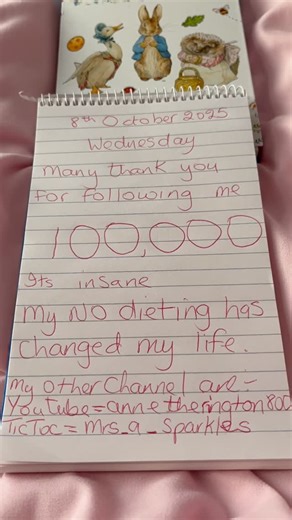 8th October 2025
Wednesday
Many thank you
For following me
100,000
Its insane
My NO dieting has
changed my life.
My other Channel are:-
YouTube = annetherington80
TicToc = Mrs_a_Sparkles